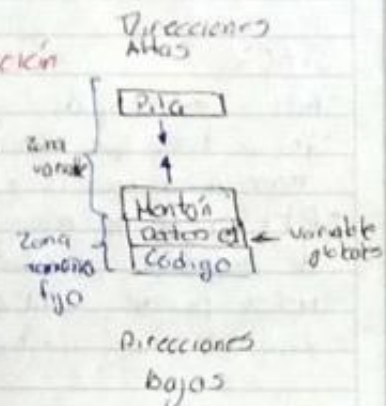 Direcciones
Altas
ción
Pila
Zona
variable
Montón
datos
variable
globales
Zona
tamaño
fijo
Código
Direcciones
bajas